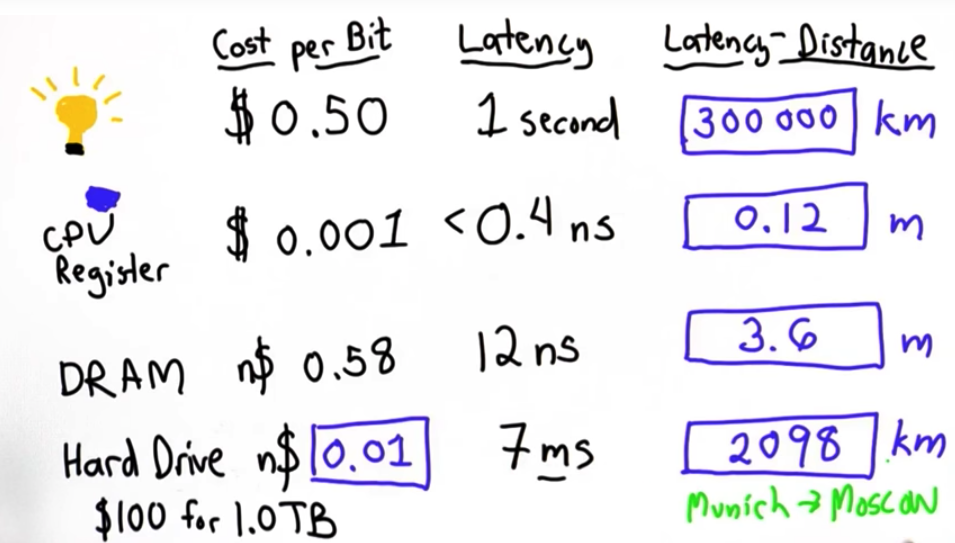 Cost per Bit Latency Latency-Distance
$ 0.50 1 second 300 000 km
CPU Register $ 0.001 <0.4 ns 0.12 m
DRAM n$ 0.58 12 ns 3.6 m
Hard Drive n$ 0.01 7 ms 2098 km
$100 for 1.0 TB Munich → Moscow